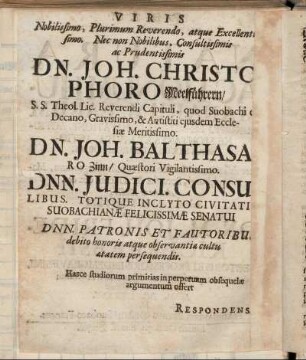 VIRIS
Nobilissimo, Plurimum Reverendo, atque Excellent
simo. Nec non Nobilibus, Consultissimis
ac Prudentissimis
DN. JOH. CHRISTO
PHORO Meelführern/
S. S. Theol. Lic. Reverendi Capituli, quod Suobachi e
Decano, Gravissimo, & Antistiti ejusdem Eccle-
siæ Meritissimo.
DN. JOH. BALTHASA
RO Zinn/ Quæstori Vigilantissimo.
DNN. JUDICI. CONSU
LIBUS. TOTIQUE INCLYTO CIVITATI
SUOBACHIANÆ FELICISSIMÆ SENATUI
DNN. PATRONIS ET FAUTORIBU.
debito honoris atque observantiæ cultu
ætatem persequendis.
Hasce studiorum primitias in perpetuum obsequelæ
argumentum offert
RESPONDENS